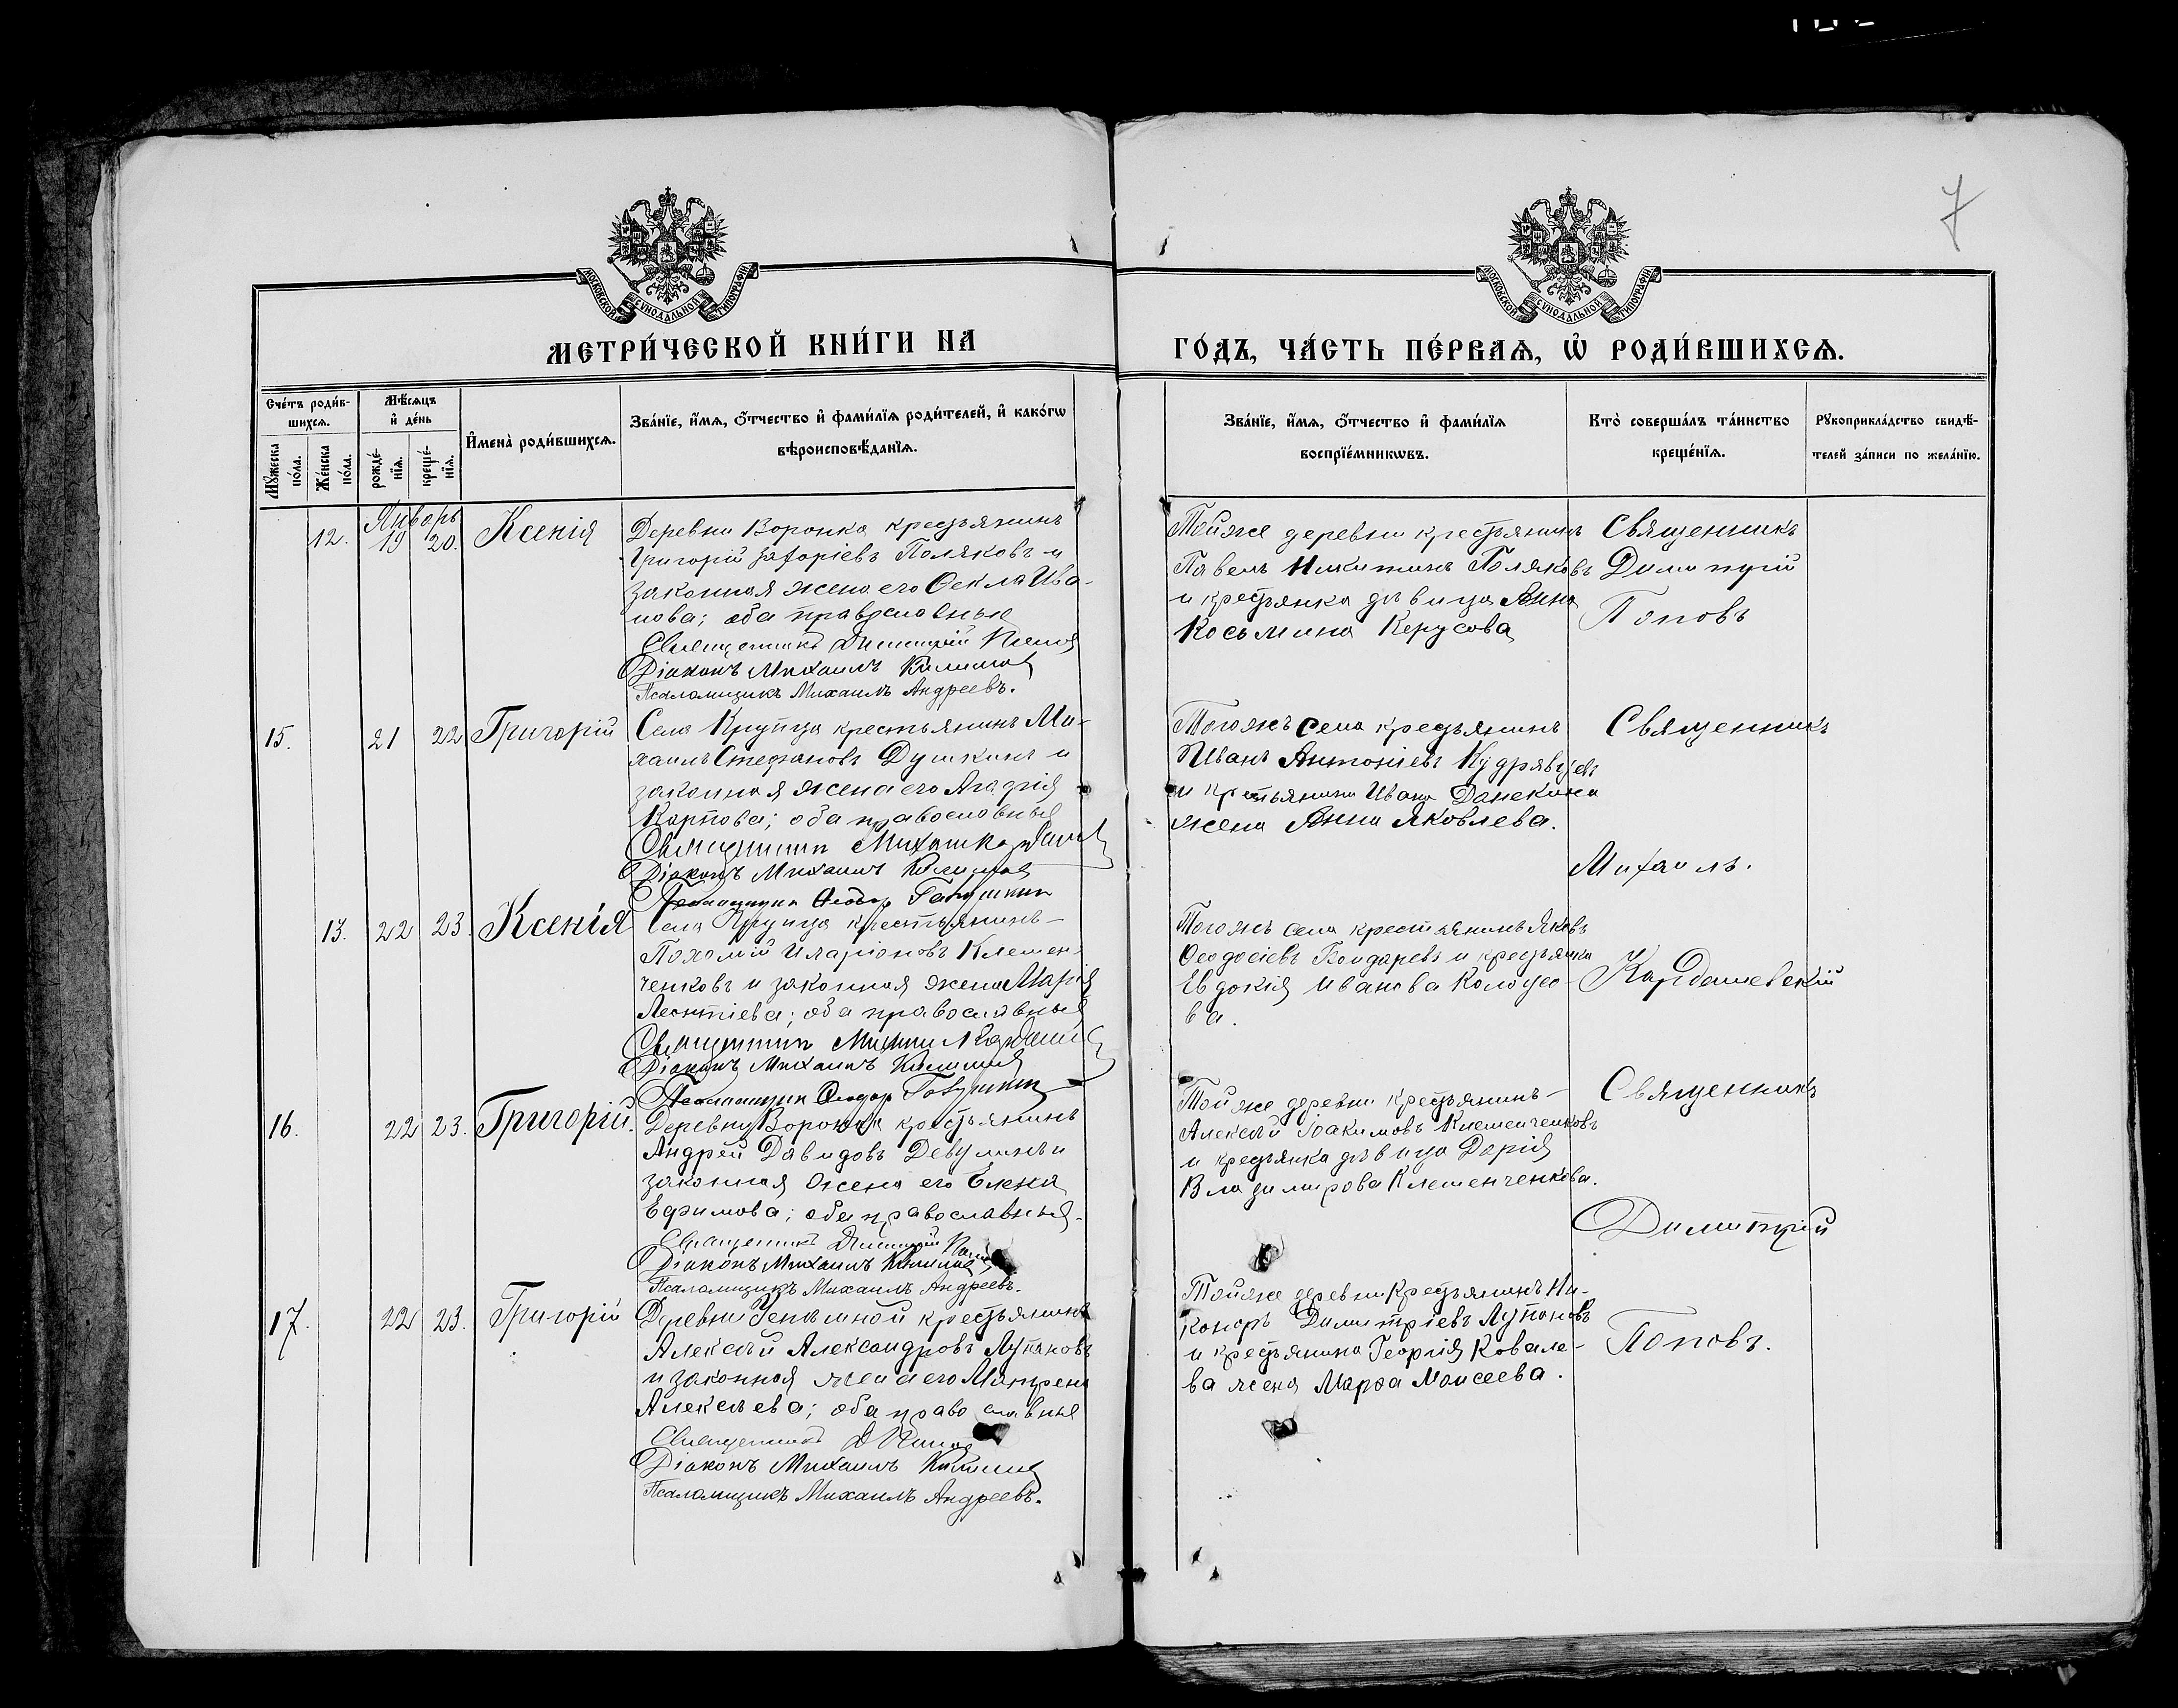 7
МОСКОВСКОЙ СѴНОДАЛЬНОЙ ТИПОГРАФІИ
МОСКОВСКОЙ СѴНОДАЛЬНОЙ ТИПОГРАФІИ
МЕТРИ́ЧЕСКОЙ КНИ́ГИ НА ГО́ДЪ, ЧА́СТЬ ПЕ́РВАѦ, Ѡ҆ РОДИ́ВШИХСѦ.
Счётъ роди́в-
шихсѧ.
Мꙋ́жеска по́ла.
Же́нска по́ла.
Мѣ́сѧцъ
и҆ де́нь
рожде́-
нїѧ.
креще́-
нїѧ.
И҆мена̀ роди́вшихсѧ.
Зва́нїе, и҆́мѧ, ѻ҆́тчество и҆ фами́лїѧ роди́телей, и҆ како́гѡ
вѣроисповѣ́данїѧ.
Зва́нїе, и҆́мѧ, ѻ҆́тчество и҆ фами́лїѧ
воспрїе́мникѡвъ.
Кто̀ соверша́лъ та́инство
креще́нїѧ.
Рꙋкоприкла́дство свидѣ́-
телей за́писи по жела́нїю.
Январь
12. 19 20. Ксенія
Деревни Воронка крестьянинъ
Григорій Захаріевъ Поляковъ и
законная жена его Ѳекла Ива-
нова; оба православные
Священникъ Димитрій Попов
Діаконъ Михаилъ
Псаломщикъ Михаилъ Андреевъ.
Тойже деревни крестьянинъ
Павелъ Никитинъ Поляковъ
и крестьянка дѣвица Анна
Косьмина Керусова
Священникъ
Димитрій
Поповъ
15. 21 22 Григорій
Села Крупца крестьянинъ Ми-
хаилъ Стефановъ Душкинъ и
законная жена его Агафія
Карпова; оба православные
Священникъ
Діаконъ Михаилъ
Псаломщикъ Ѳеодор
Тогожъ села крестьянинъ
Иванъ Антоніевъ Кудрявцевъ
и крестьянина Ивана Данекина
жена Анна Яковлева.
Священникъ
Михаилъ.
13. 22 23. Ксенія
Села Крупца крестьянинъ
Пахомій Иларіоновъ Клемен-
ченковъ и законная жена Марія
Леонтіева; оба православные
Священникъ
Діаконъ Михаилъ
Псаломщикъ Ѳеодор
Тогожъ села крестьянинъ Яковъ
Ѳеодосіевъ Бондаревъ и крестьянка
Евдокія Иванова Колосо-
ва.
Кардашевскій
16. 22 23. Григорій.
Деревни Воронка крестьянинъ
Андрей Давидовъ Девулинъ и
законная жена его Елена
Ефимова; оба православные.
Священникъ Димитрій Попов
Діаконъ Михаилъ
Псаломщикъ Михаилъ Андреевъ.
Тойже деревни крестьянинъ
Алексѣй Іоакимовъ Клеменченковъ
и крестьянка дѣвица Дарія
Владимирова Клеменченкова.
Священникъ
Димитрій
17. 22 23. Григорій
Деревни крестьянинъ
Алексѣй Александровъ Лупановъ
и законная жена его Матрена
Алексѣева; оба православные
Священникъ Д Попов
Діаконъ Михаилъ
Псаломщикъ Михаилъ Андреевъ.
Тойже деревни крестьянинъ Ни-
каноръ Димитріевъ Лупановъ
и крестьянина Георгія Ковале-
ва жена Марфа Моисеева.
Поповъ.